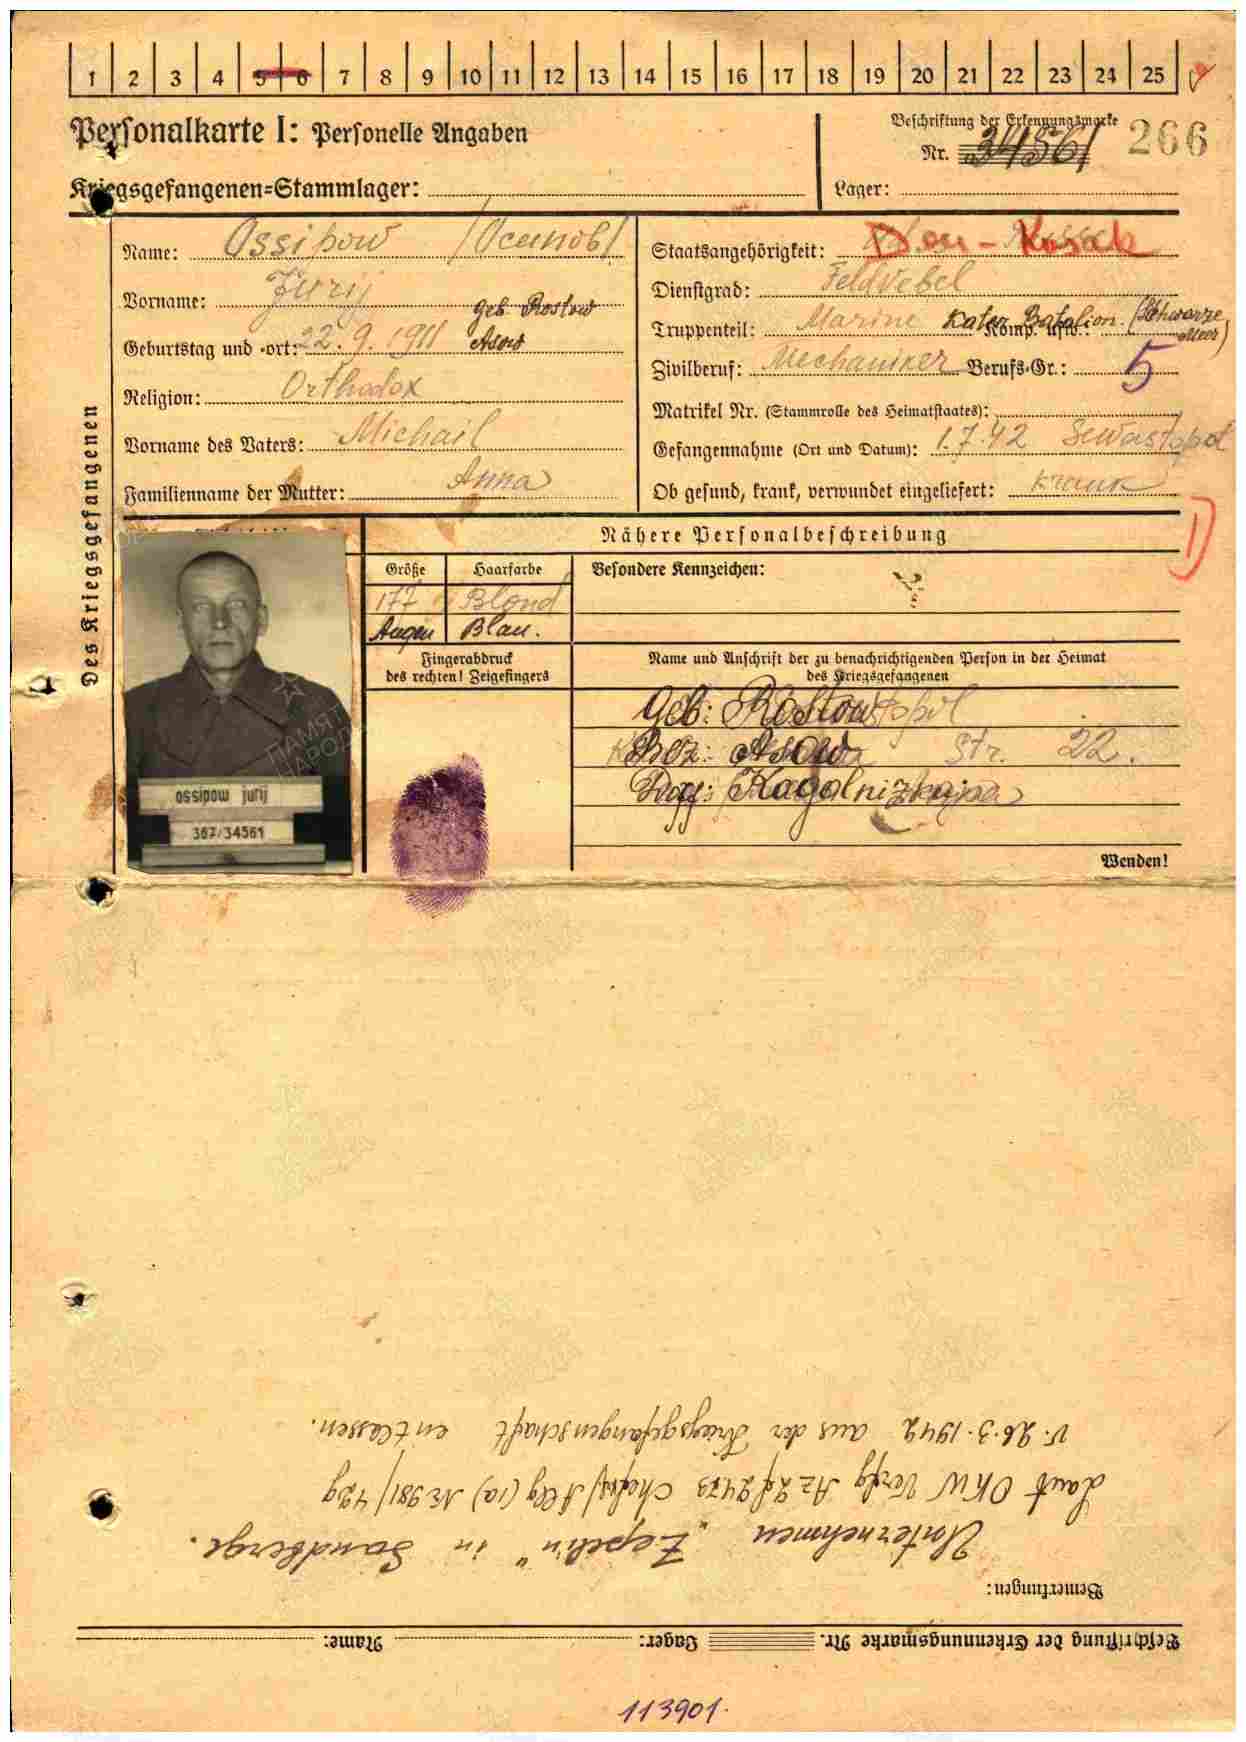 1 2 3 4 5 6 7 8 9 10 11 12 13 14 15 16 17 18 19 20 21 22 23 24 25
Personalkarte I: Personelle Angaben
Kriegsgefangenen=Stammlager:
Beschriftung der Erkennungsmarke
Nr. 34561 266
Lager:
Des Kriegsgefangenen
Name: Ossipow /Осипов/
Vorname: Jurij
Geburtstag und -ort: 22.9.1911 geb. Rostow
Asow
Religion: Orthodox
Vorname des Vaters: Michail
Familienname der Mutter: Anna
Staatsangehörigkeit: Don-Kosak
Dienstgrad: Feldvebel
Truppenteil: Marine Kater Batalion. (Schwarze Meer) Komp. usw.:
Zivilberuf: Mechaniker Berufs-Gr.: 5
Matrikel Nr. (Stammrolle des Heimatstaates):
Gefangennahme (Ort und Datum): 1.7.42 Sewastopol
Ob gesund, krank, verwundet eingeliefert: krank
Nähere Personalbeschreibung
Größe Haarfarbe Besondere Kennzeichen:
177 Blond
Augen Blau.
Fingerabdruck
des rechten! Zeigefingers
Name und Anschrift der zu benachrichtigenden Person in der Heimat
des Kriegsgefangenen
Geb: Rostow
Bez: Asow Str. 22.
Kagalnizkaja
Wenden!
ossipow jurij
367/34561
ПАМЯТЬ НАРОДА
Beschriftung der Erkennungsmarke Nr. Lager: Name:
Bemerkungen:
Unternehmen „Zepelin" in Sandberge.
Laut OKW Verfg Az 2f 24 73 Chefs/Allg (Ia) № 981/42g
v. 26.3.1942 aus der Kriegsgefangenschaft entlassen.
113901.